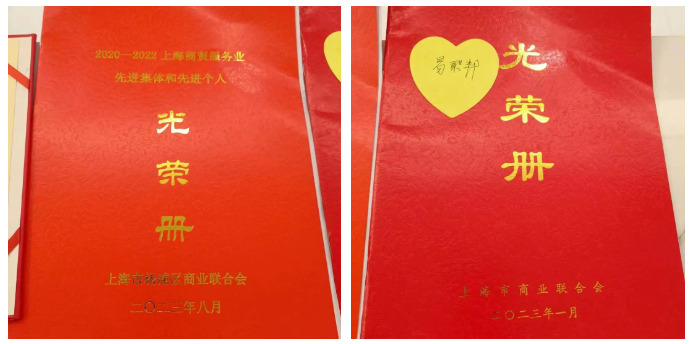 2020—2022上海商贸服务业
先进集体和先进个人
光
荣
册
上海市杨浦区商业联合会
二〇二三年八月
光
荣
册
上海市商业联合会
二〇二三年一月